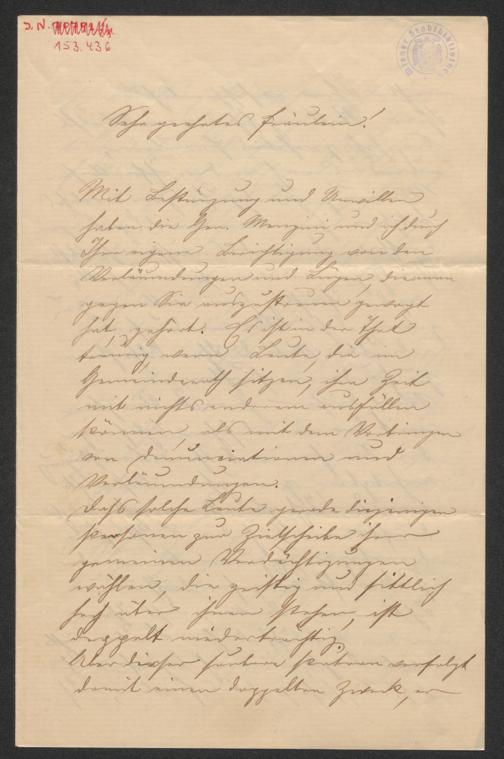 J. N.
153.436
Wiener Stadtbibliothek
Sehr geehrtes Fräulein!
Mit Bestürzung und Unwillen
haben die Gen. und ich durch
Ihre eigene Berichtigung von den
Verläumdungen und Lügen, die man
gegen Sie auszustreuen gewagt
hat, gehört. Es ist in der That
traurig, wenn Leute, die im
Gemeinderath sitzen, ihre Zeit
mit nichts anderem ausfüllen
können, als mit dem Vorbringen
von Denunciationen und
Verläumdungen.
Daß solche Leute gerade diejenigen
Personen zur Zielscheibe ihrer
gemeinen Verdächtigungen
wählen, die geistig und sittlich
hoch über ihnen stehen, ist
doppelt niederträchtig.
Aber dieser saubere Patron verfolgt
damit einen doppelten Zweck, er